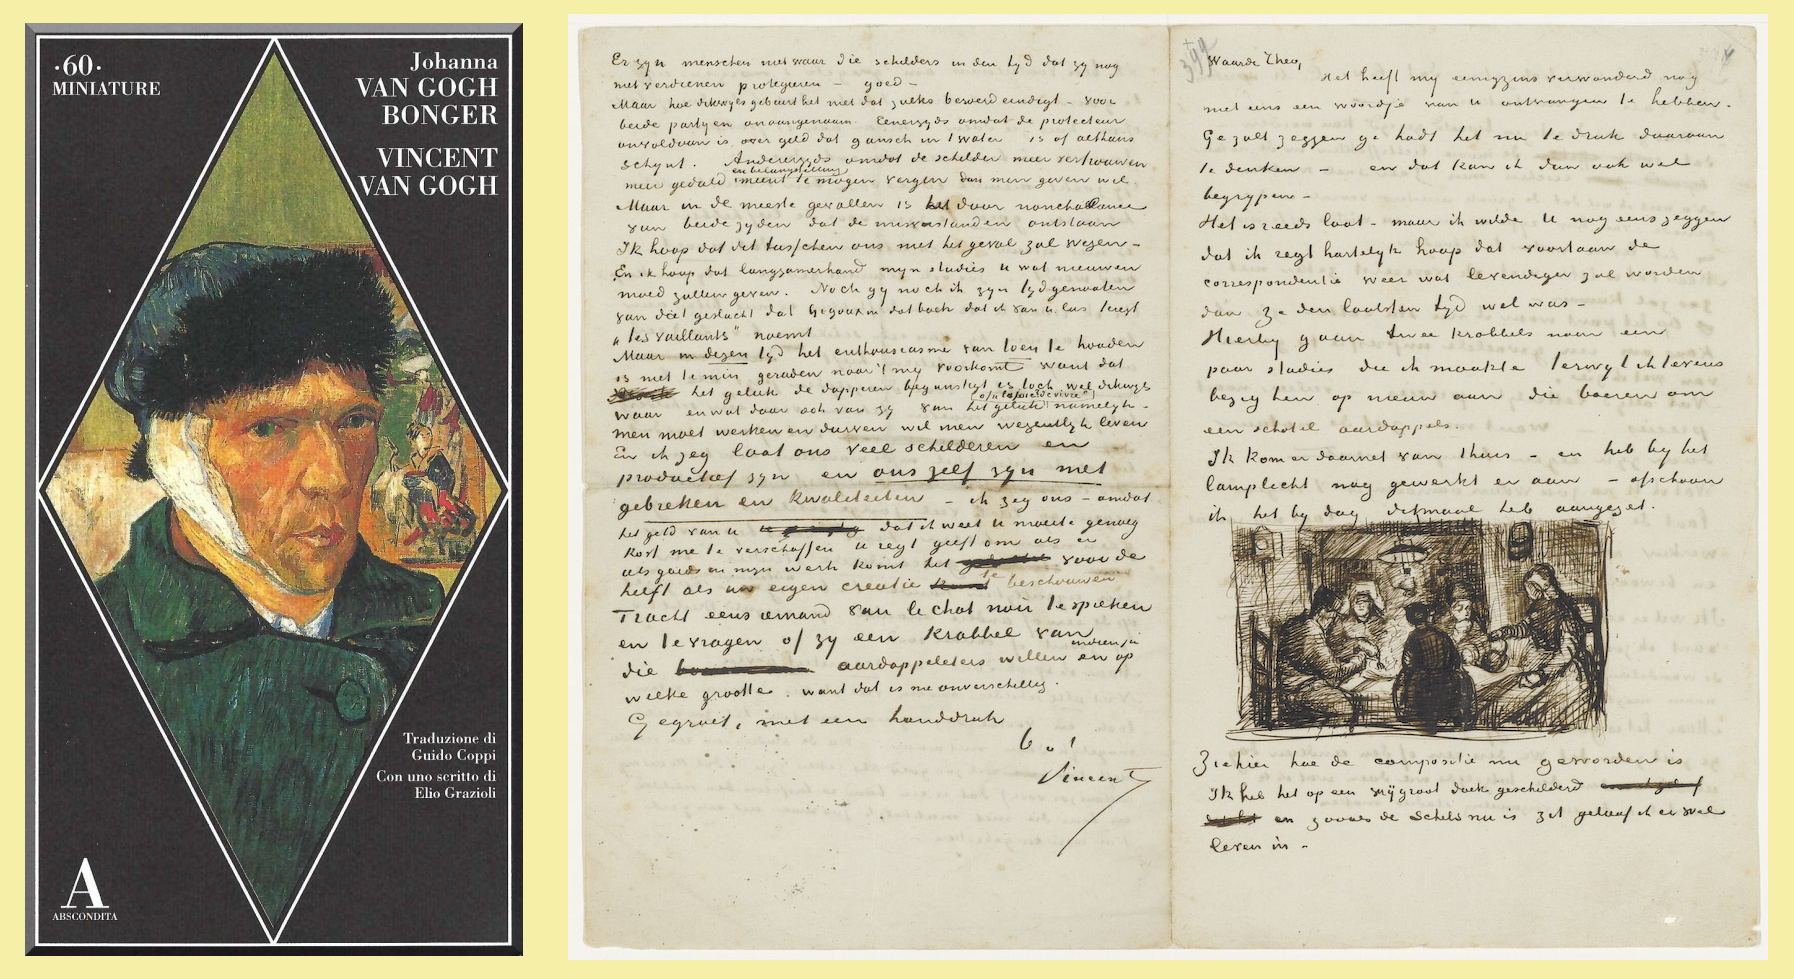 ·60·
MINIATURE
Johanna
VAN GOGH
BONGER
VINCENT
VAN GOGH
Traduzione di
Guido Coppi
Con uno scritto di
Elio Grazioli
A
ABSCONDITA
Er zyn menschen niet waar die schilders in den tyd dat zy nog
niet verdienen protegeeren – goed –
Maar hoe dikwyls gebeurt het niet dat zulks beroerd eindigt – voor
beide partyen onaangenaam. Eenerzyds omdat de protecteur
onvoldaan is over geld dat gansch in 't water is of althans
schynt. Anderzyds omdat de schilder meer vertrouwen
en belangstelling
meer geduld meent te mogen vergen dan men geven wil.
Maar in de meeste gevallen is het door nonchalance
van beide zyden dat de misverstanden ontstaan
Ik hoop dat dit tusschen ons niet het geval zal wezen –
En ik hoop dat langzamerhand myn studies u wat nieuwen
moed zullen geven. Noch gy noch ik zyn tydgenooten
van dat geslacht dat Gigoux in dat boek dat ik van u las teregt
„les vaillants" noemt
Maar in dezen tyd het enthousiasme van toen te houden
is niet te min geraden naar 't my voorkomt want dat
het geluk de dapperen begunstigt is toch wel dikwyls
waar en wat daar ook van zy van het geluk namelyk –
men moet werken en durven wil men wezentlyk leven
En ik zeg laat ons veel schilderen en
productief zyn en ons zelf zyn met
gebreken en kwaliteiten – ik zeg ons – omdat
het geld van u dat ik weet u moeite genoeg
kost me te verschaffen u regt geeft om als er
iets goeds in myn werk komt het voor de
helft als uw eigen creatie te beschouwen
Tracht eens iemand van le chat noir te spreken
en te vragen of zy een krabbel van
die aardappeleters willen en op
indien ja
welke grootte. want dat is me onverschillig.
Gegroet, met een handdruk
b.t.
Vincent
Waarde Theo,
Het heeft my eenigzins verwonderd nog
niet eens een woordje van u ontvangen te hebben.
Ge zult zeggen ge hadt het nu te druk daaraan
te denken – en dat kan ik dan ook wel
begrypen –
Het is reeds laat – maar ik wilde u nog eens zeggen
dat ik regt hartelyk hoop dat voortaan de
correspondentie weer wat levendiger zal worden
dan ze den laatsten tyd wel was –
Hierby gaan twee krabbels naar een
paar studies die ik maakte terwyl ik tevens
bezig ben op nieuw aan die boeren om
een schotel aardappels.
Ik kom er daarnet van thuis – en heb by het
lamplicht nog gewerkt er aan – ofschoon
ik het by dag ditmaal heb aangezet.
Ziehier hoe de compositie nu geworden is
Ik heb het op een vrij groot doek geschilderd
en zooals de schets nu is zit geloof ik er wel
leven in –